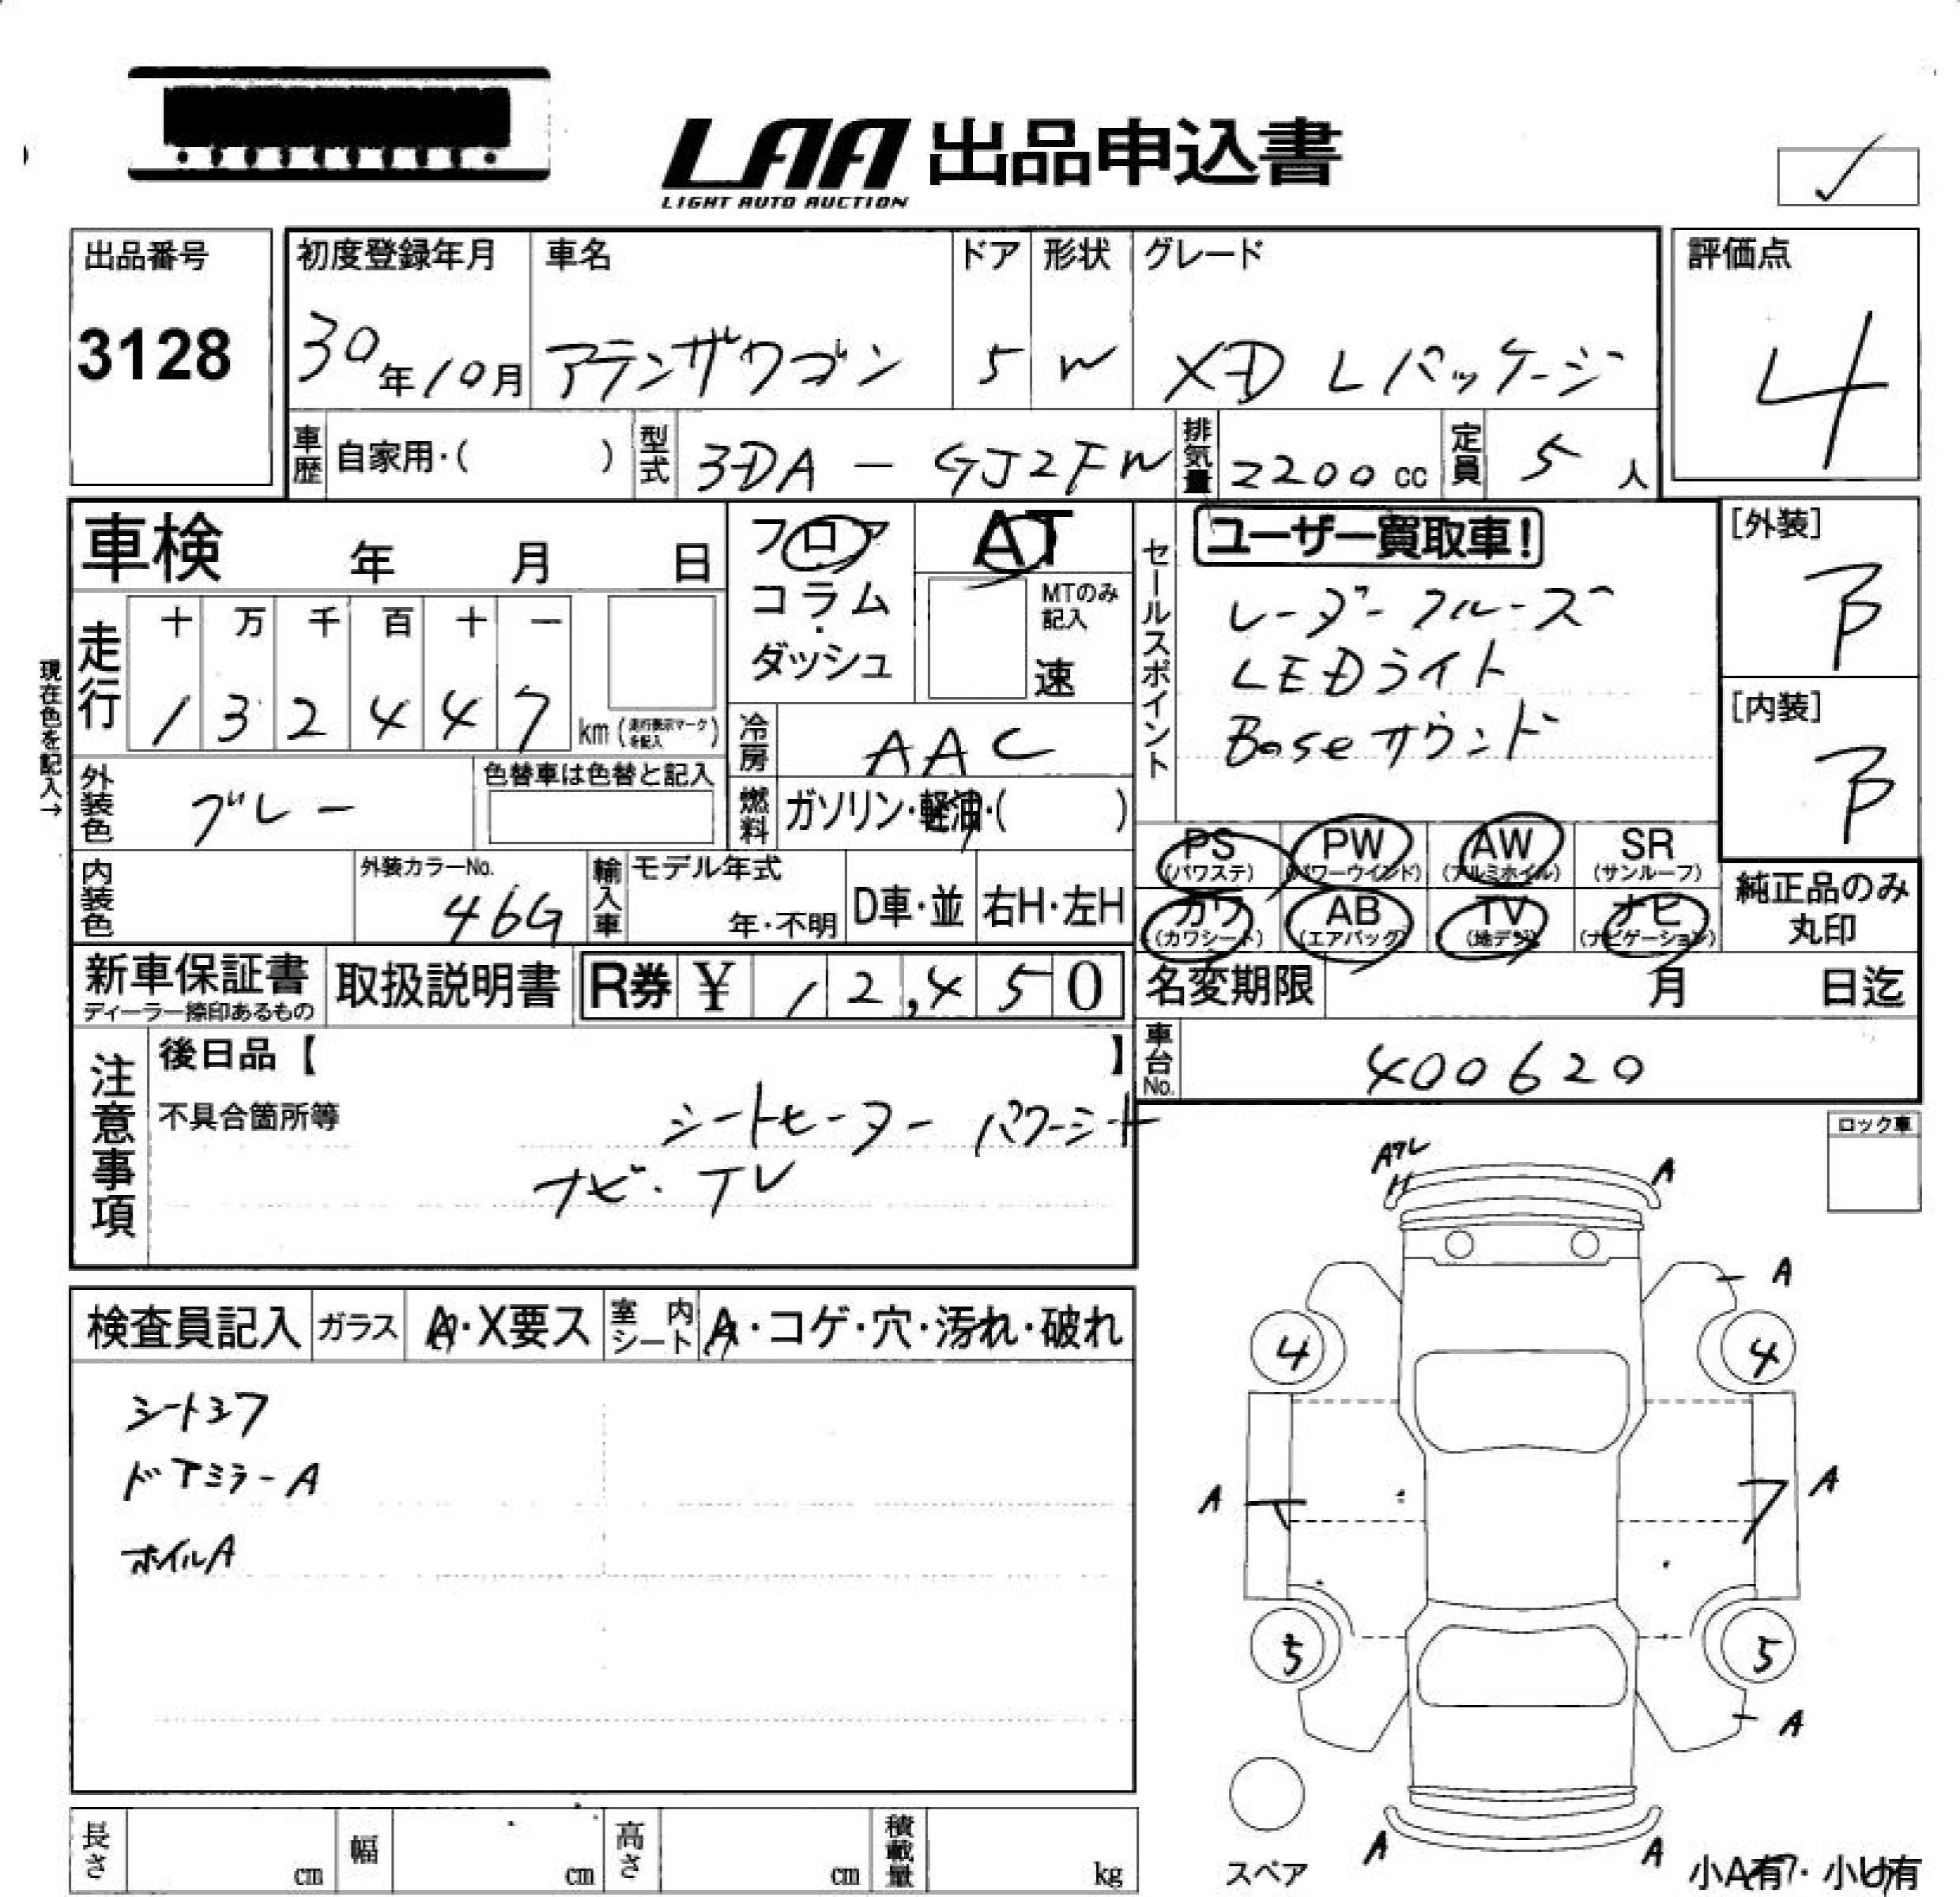 LAA 出品申込書
LIGHT AUTO AUCTION
出品番号 初度登録年月 車名 ドア 形状 グレード 評価点
3128 30年10月 アテンザワゴン 5 W XD Lパッケージ 4
車歴 自家用・( ) 型式 3DA-GJ2FW 排気量 2200cc 定員 5人
車検 年 月 日 フロア AT セールスポイント ユーザー買取車! [外装]
コラム・ MTのみ記入 レーダークルーズ B
ダッシュ 速 LEDライト
走行 十 万 千 百 十 一
1 3 2 4 4 7 km (走行表示マークを記入) Boseサウンド [内装]
現在色を記入→
冷房 AAC B
外装色 グレー 色替車は色替と記入 燃料 ガソリン・軽油・( )
PS (パワステ) PW (パワーウインド) AW (アルミホイル) SR (サンルーフ)
内装色 外装カラーNo. 46G 輸入車 モデル年式 年・不明 D車・並 右H・左H
カワ (カワシート) AB (エアバッグ) TV (地デジ) ナビ (ナビゲーション) 純正品のみ丸印
新車保証書 ディーラー捺印あるもの 取扱説明書 R券 ¥ 12,450 名変期限 月 日迄
車台No. 400620
注意事項 後日品【 】
不具合箇所等 シートヒーター パワーシート
ナビ・TV
ロック車
Aワレ A
A
検査員記入 ガラス A・X要ス 室内シート A・コゲ・穴・汚れ・破れ
4 4
シートシワ
ドアミラーA
A A
ホイルA
5 5
A
A A
長さ cm 幅 cm 高さ cm 積載量 kg スペア 小A有・小U有